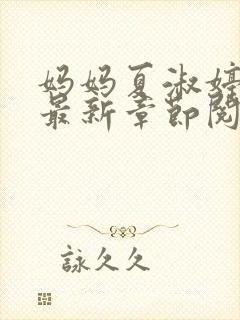 妈妈夏淑婷
最新章节阅
詠久久